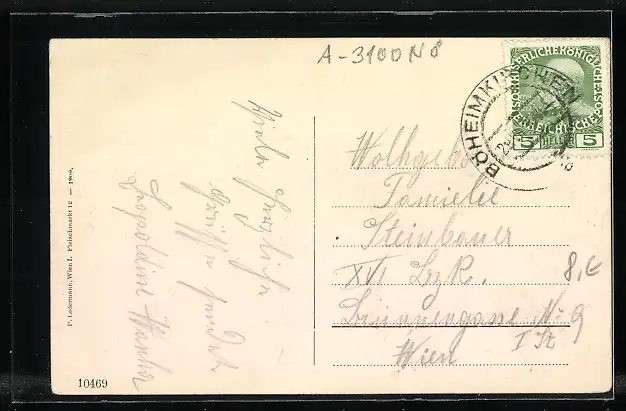 A-3100 NÖ
KAISERLICHE KÖNIGLICHE
ÖSTERREICHISCHE POST
5 HELLER 5
BÖHEIMKIRCHEN
Viele herzliche
Grüße sendet
Leopoldine
Wolhgeb
Familie
Steinbauer
XVI Bzk.
Brunnengasse No 9
I St
Wien
8,€
P. Ledermann, Wien I. Fleischmarkt 12 — 1909.
10469